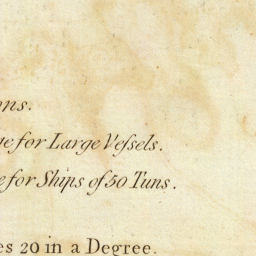 ons.
ge for Large Veſsels.
e for Ships of 50 Tuns.
es 20 in a Degree.